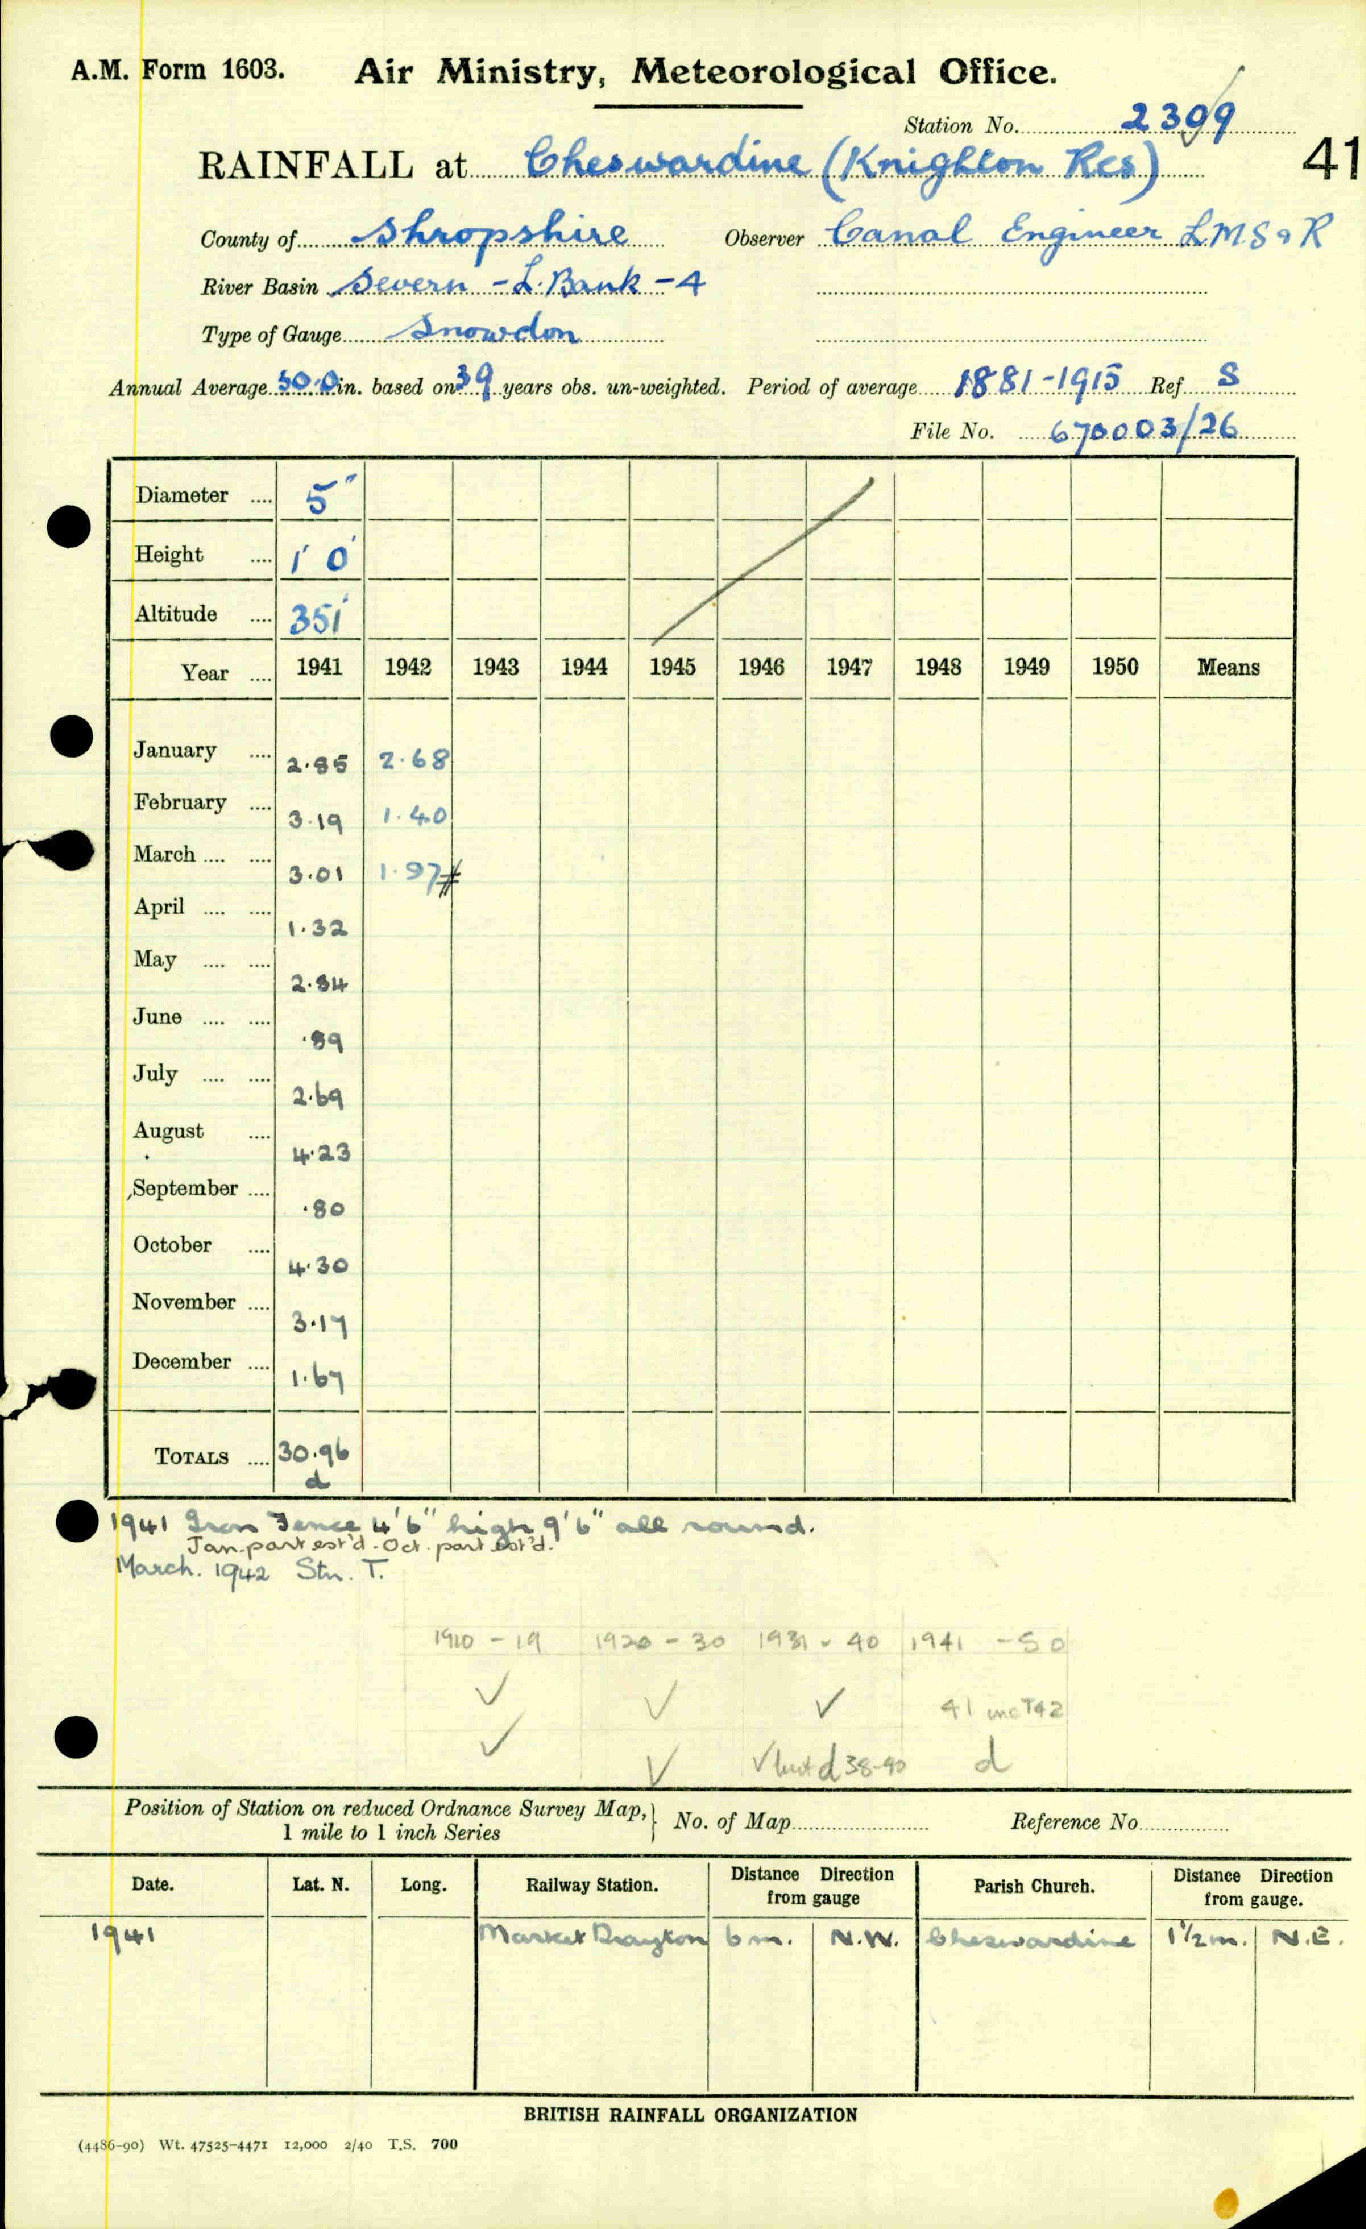 A.M. Form 1603. Air Ministry, Meteorological Office.
Station No. 2309
41
RAINFALL at Cheswardine (Knighton Res)
County of Shropshire Observer Canal Engineer LMS & R
River Basin Severn - L. Bank - 4
Type of Gauge Snowdon
Annual Average 30.0 in. based on 39 years obs. un-weighted. Period of average 1881-1915 Ref S
File No. 670003/26
Diameter .... 5"
Height .... 1' 0"
Altitude .... 351'
Year .... 1941 1942 1943 1944 1945 1946 1947 1948 1949 1950 Means
January .... 2.85 2.68
February .... 3.19 1.40
March .... .... 3.01 1.97#
April .... .... 1.32
May .... .... 2.84
June .... .... .89
July .... .... 2.69
August .... 4.23
September .... .80
October .... 4.30
November .... 3.17
December .... 1.67
TOTALS .... 30.96
d
1941 Iron Fence 4'6" high 9'6" all round.
Jan. part est'd. Oct. part est'd.
March. 1942 Stn. T.
1910 - 19 1920 - 30 1931 - 40 1941 - 50
✓ ✓ ✓ 41 inc T42
✓ ✓ ✓ but d 38-40 d
Position of Station on reduced Ordnance Survey Map, } No. of Map Reference No.
1 mile to 1 inch Series
Date. Lat. N. Long. Railway Station. Distance Direction from gauge Parish Church. Distance Direction from gauge.
1941 Market Drayton 6 m. N.W. Cheswardine 1½ m. N.E.
BRITISH RAINFALL ORGANIZATION
(4486-90) Wt. 47525-4471 12,000 2/40 T.S. 700